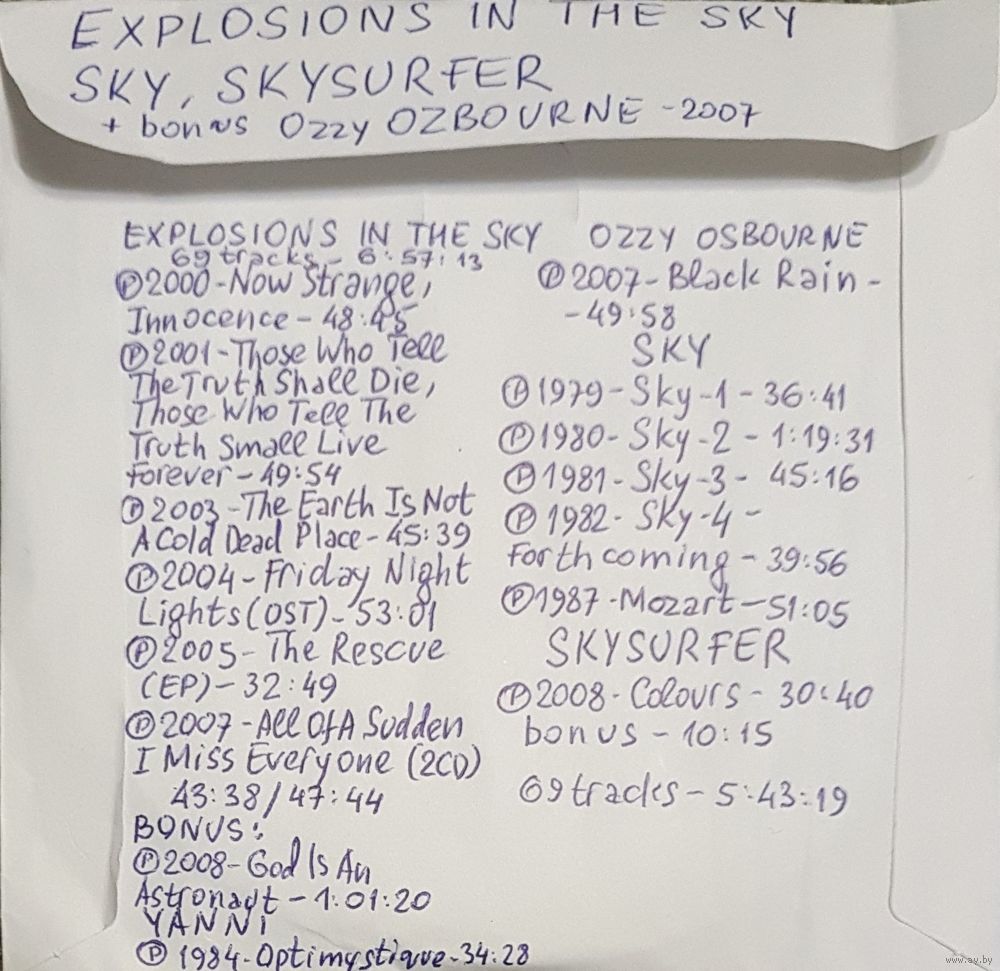 EXPLOSIONS IN THE SKY
SKY, SKYSURFER
+ bonus Ozzy OZBOURNE - 2007
EXPLOSIONS IN THE SKY
69 tracks - 6:57:13
Ⓟ2000-Now Strange,
Innocence - 48:45
Ⓟ2001-Those Who Tell
The Truth Shall Die,
Those Who Tell The
Truth Small Live
forever - 49:54
Ⓟ2003-The Earth Is Not
A Cold Dead Place - 45:39
Ⓟ2004-Friday Night
Lights (OST) - 53:01
Ⓟ2005-The Rescue
(EP) - 32:49
Ⓟ2007-All Of A Sudden
I Miss Everyone (2CD)
43:38/47:44
BONUS:
Ⓟ2008-God Is An
Astronaut - 1:01:20
YANNI
Ⓟ 1984-Optimystique-34:28
OZZY OSBOURNE
Ⓟ2007-Black Rain -
-49:58
SKY
Ⓟ1979-Sky-1 - 36:41
Ⓟ1980-Sky-2 - 1:19:31
Ⓟ1981-Sky-3 - 45:16
Ⓟ1982-Sky-4 -
forthcoming - 39:56
Ⓟ1987-Mozart - 51:05
SKYSURFER
Ⓟ2008-Colours - 30:40
bonus - 10:15
69 tracks - 5:43:19
www.ay.by